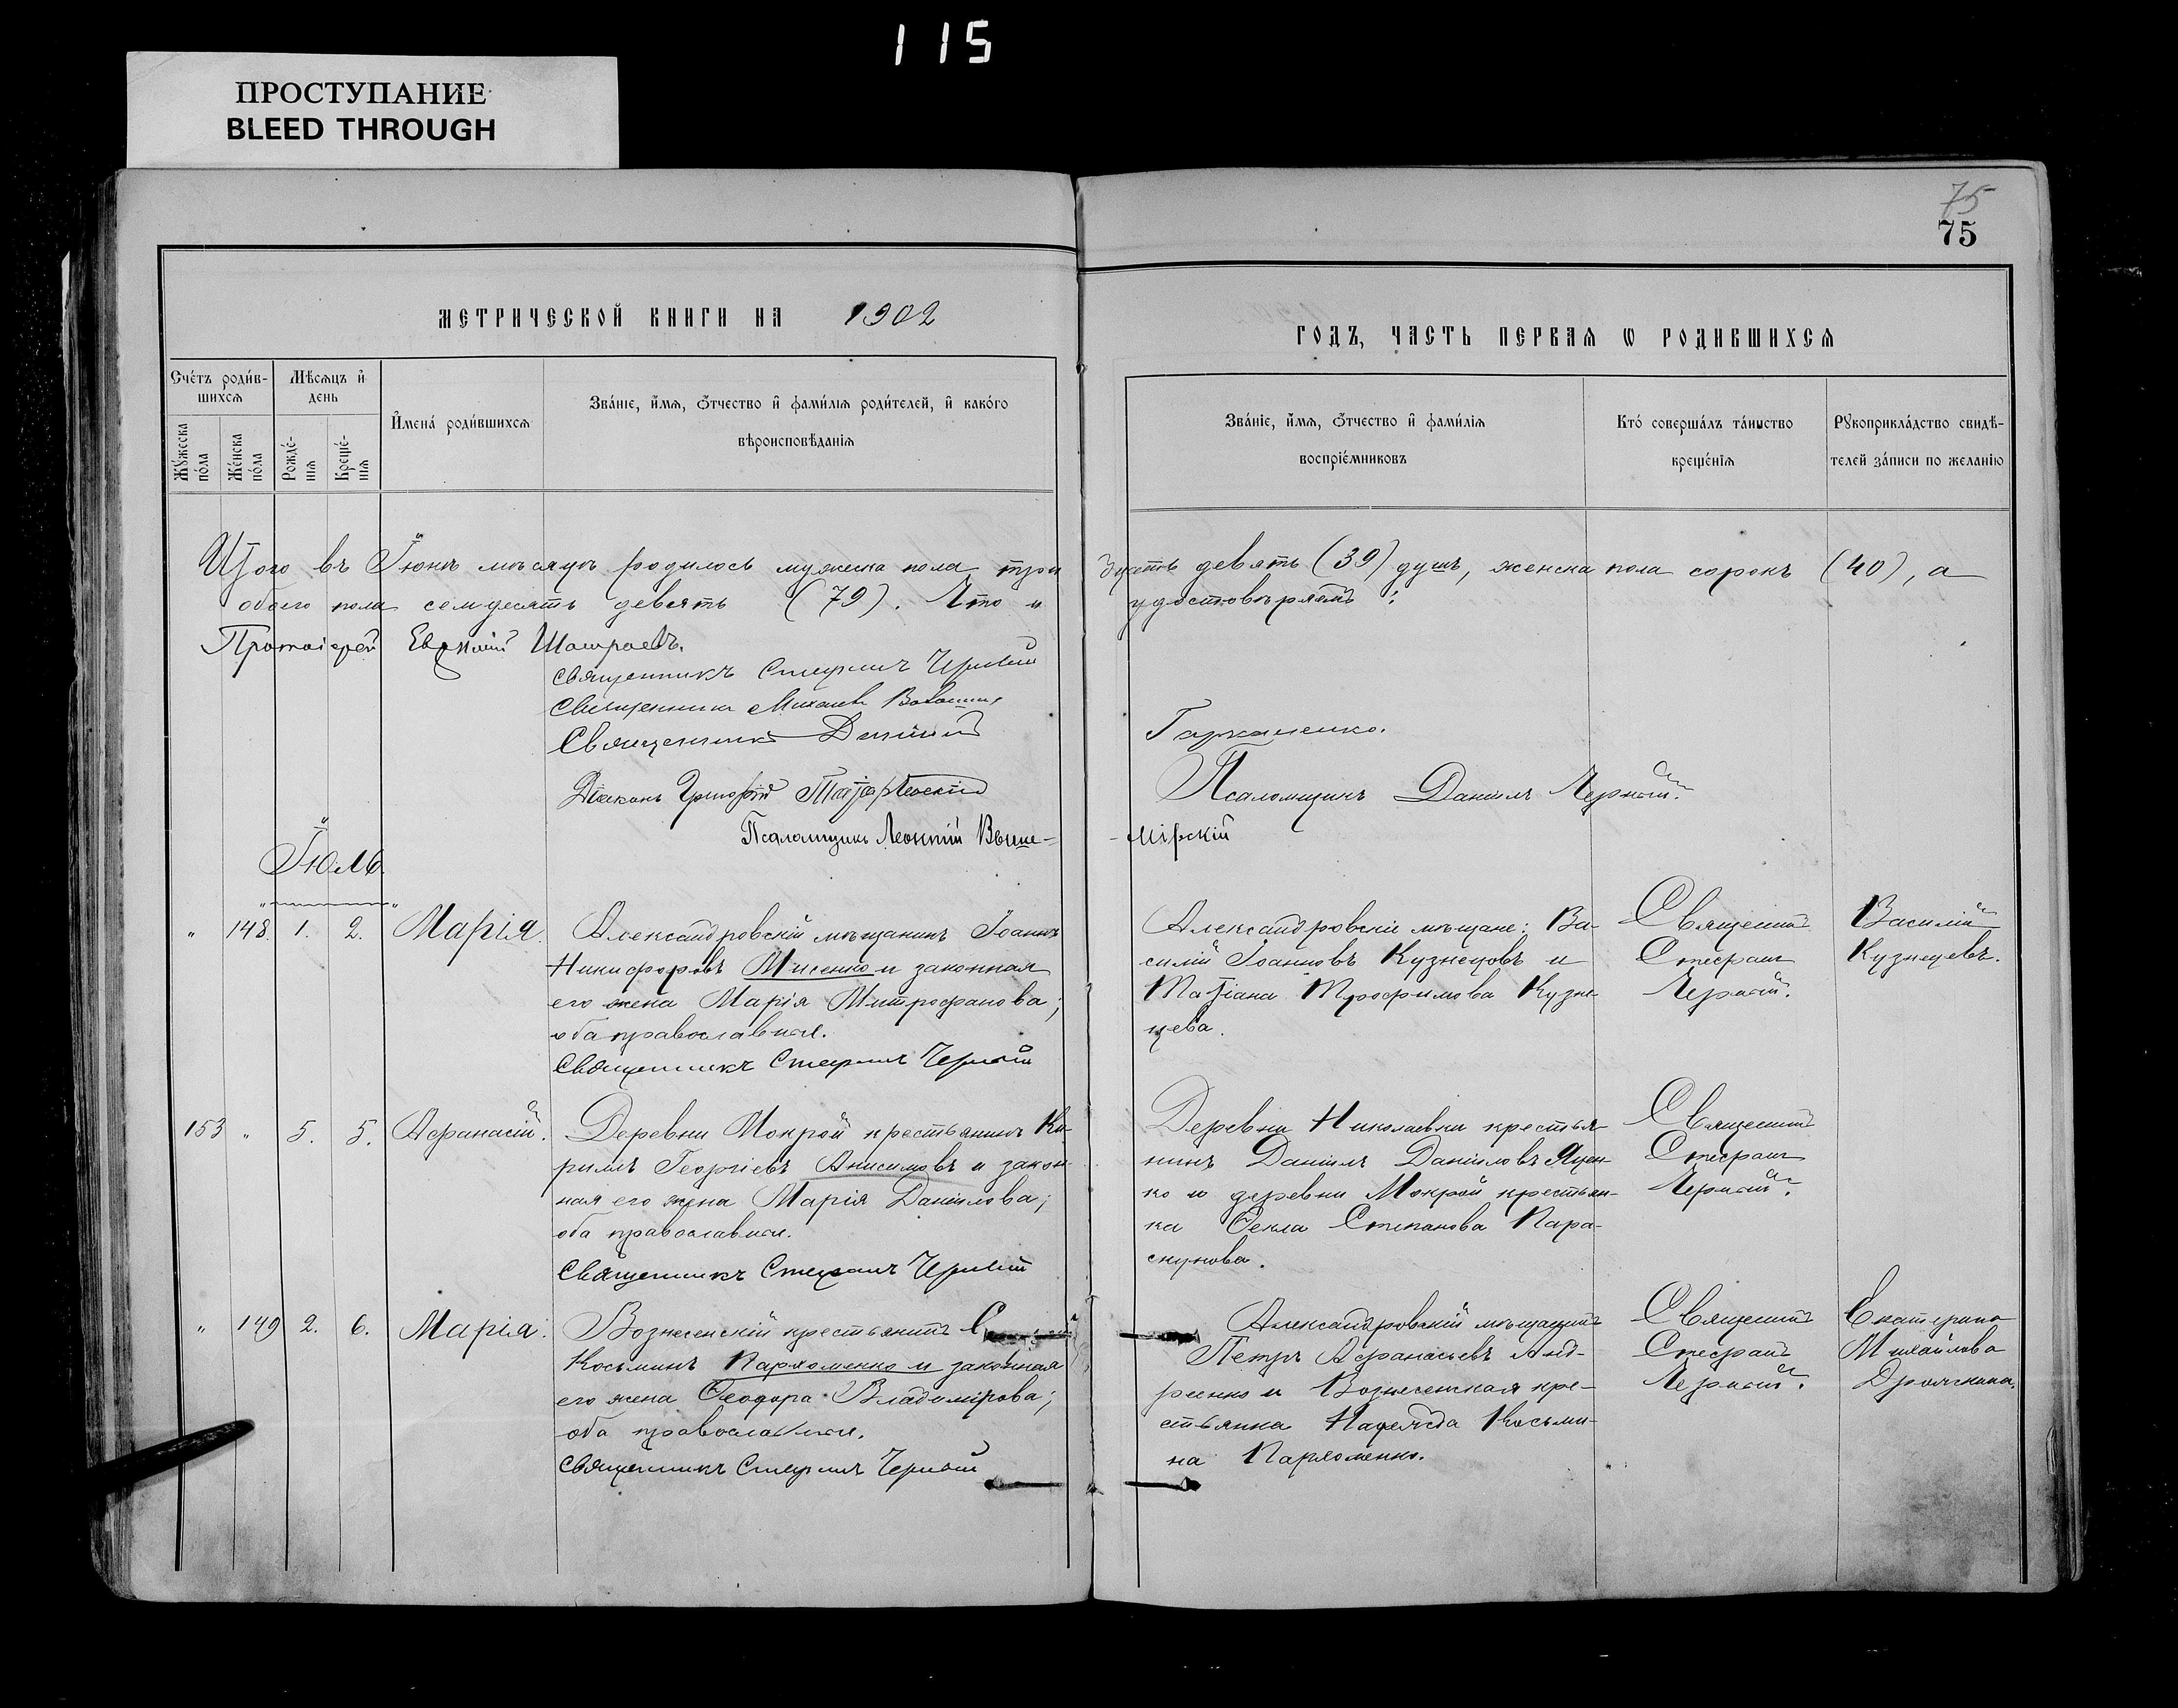 115
ПРОСТУПАНИЕ
BLEED THROUGH
75
75
МЕТРИЧЕСКОЙ КНИГИ НА 1902
ГОДЪ, ЧАСТЬ ПЕРВАЯ Ѡ РОДИВШИХСЯ
Счетъ родив-
шихся
Мужеска
пола
Женска
пола
Мѣсяцъ и
день
Рожде-
нія
Креще-
нія
Имена родившихся
Званіе, имя, отчество и фамилія родителей, и какого
вѣроисповѣданія
Званіе, имя, отчество и фамилія
воспріемниковъ
Кто совершалъ таинство
крещенія
Рукоприкладство свидѣ-
телей записи по желанію
Итого въ Іюнѣ мѣсяцѣ родилось мужеска пола три дцать девять (39) душъ, женска пола сорокъ (40), а
обоего пола семдесятъ девять (79). Что и удостовѣряемъ:
Протоіерей
Священникъ Стефанъ Черный
Священникъ Михаилъ
Священникъ Гаркашенко.
Діаконъ Григорій Псаломщикъ Даніилъ Черный.
Псаломщикъ Леонтій Выше-
-мірскій
Іюль
" 148. 1. 2. Марія.
Александровскій мѣщанинъ Іоаннъ
Никифоровъ Мисенко и законная
его жена Марія Митрофанова;
оба православные.
Священникъ Стефанъ Черный
Александровскіе мѣщане: Ва-
силій Іоанновъ Кузнецовъ и
Татіана Трофимова Кузне-
цева.
Священникъ
Стефанъ
Черный.
Василій
Кузнецевъ.
153 " 5. 5. Афанасій.
Деревни Мокрой крестьянинъ Ки-
риллъ Георгіевъ Анисимовъ и закон-
ная его жена Марія Даніилова;
оба православные.
Священникъ Стефанъ Черный
Деревни Николаевки крестья-
нинъ Даніилъ Данііловъ Яцен-
ко и деревни Мокрой крестьян-
ка Ѳекла Степанова Пара-
скунова.
Священникъ
Стефанъ
Черный.
" 149 2. 6. Марія.
Вознесенскій крестьянинъ
Косьминъ Пархоменко и законная
его жена Ѳеодора Владимірова;
оба православные.
Священникъ Стефанъ Черный
Александровскій мѣщанинъ
Петръ Афанасьевъ Анд-
реенко и Вознесенская кре-
стьянка Надежда Косьми-
на Пархоменко.
Священникъ
Стефанъ
Черный.
Екатерина
Михайлова